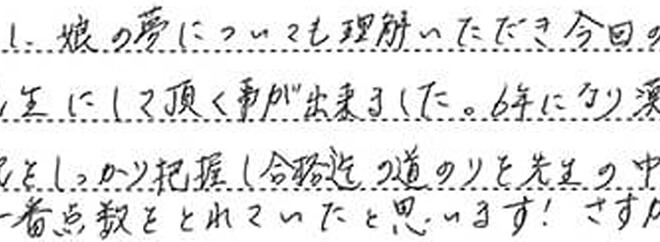 し、娘の夢についても理解いただき今回の
生にして頂く事が出来ました。6年になり漢
をしっかり把握し合格迄の道のりを先生の中
一番点数をとれていたと思います！さすが